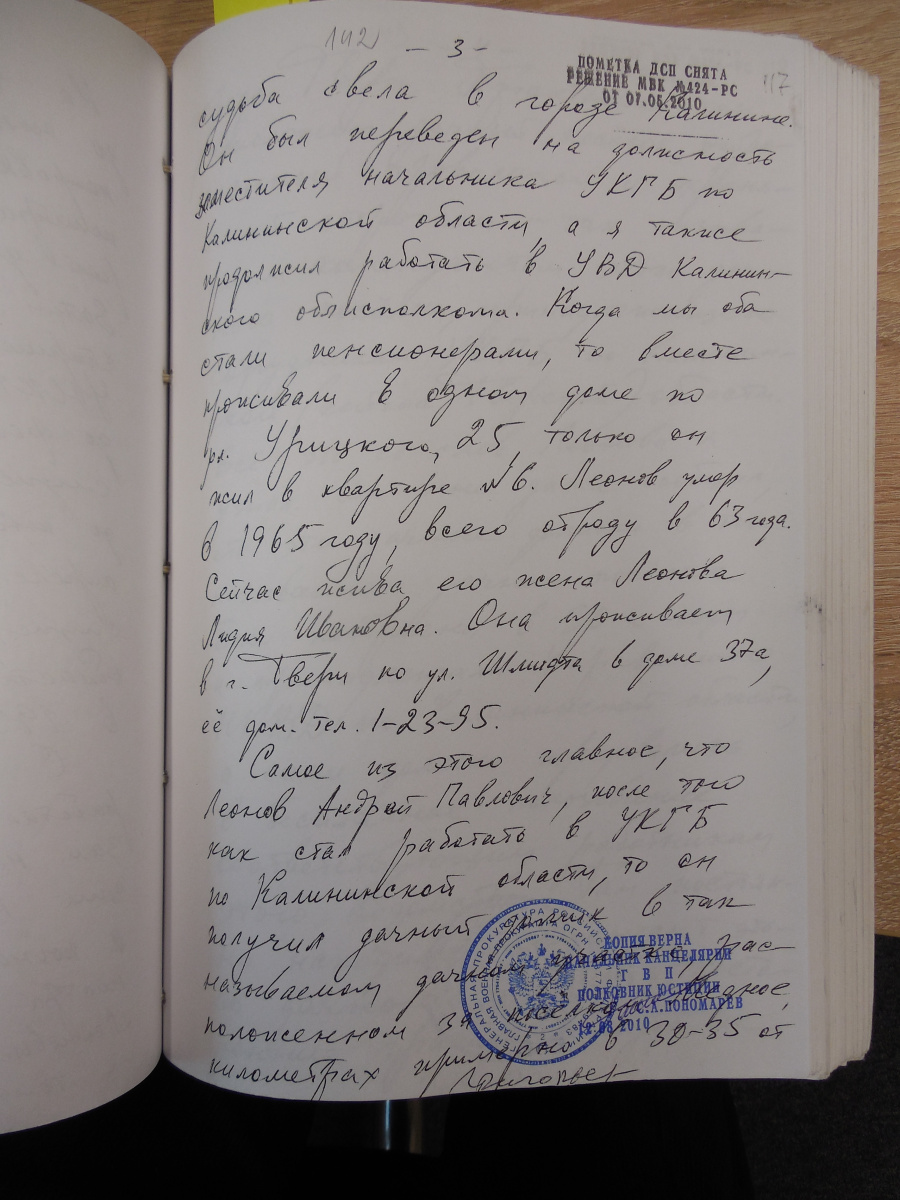 142
- 3 -
ПОМЕТКА ДСП СНЯТА
РЕШЕНИЕ МВК №424-РС
ОТ 07.05.2010
117
судьба свела в городе Калинине.
Он был переведен на должность
заместителя начальника УКГБ по
Калининской области, а я также
продолжил работать в УВД Калинин-
ского облисполкома. Когда мы оба
стали пенсионерами, то вместе
проживали в одном доме по
Урицкого, 25, только он
жил в квартире №6. Леонов умер
в 1965 году, всего отроду в 63 года.
Сейчас жива его жена Леонова
Лидия Ивановна. Она проживает
в г. Твери по ул. Шмидта в доме 37а,
её дом. тел. 1-23-95.
Самое из этого главное, что
Леонов Андрей Павлович, после того
как стал работать в УКГБ
по Калининской области, то он
получил дачный домик в так
называемом дачном участке, рас-
положенном за поселком Медное,
километрах примерно в 30-35 от
КОПИЯ ВЕРНА
НАЧАЛЬНИК КАНЦЕЛЯРИИ
Г В П
ПОЛКОВНИК ЮСТИЦИИ
С.А.ПОНОМАРЕВ
2010